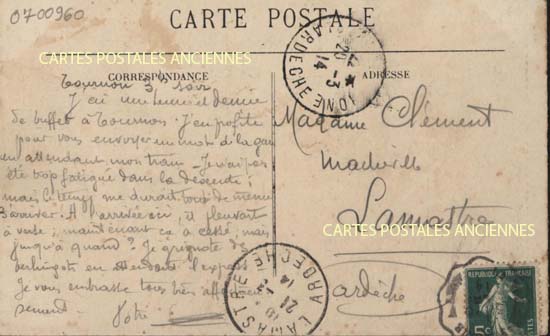 0700960
CARTE POSTALE
CARTES POSTALES ANCIENNES
CORRESPONDANCE
ADRESSE
Tournon 3 soir
J'ai une heure et demie
de buffet à Tournon. J'en profite
pour vous envoyer un mot de la gare
en attendant mon train. Je n'ai pas
été trop fatigué dans la descente ;
mais le temps me durait tout de même
d'arriver. A l'arrivée ici, il pleuvait
à verse ; maintenant ça a cessé, mais
jusqu'à quand ? Je grignote des
berlingots en attendant l'express
Je vous embrasse tous bien affectueu
sement. Votre
Madame Clément
Lamastre
Ardèche
CARTES POSTALES ANCIENNES
ARDECHE
20 -3
14
LAMASTRE ARDECHE
21 -3
14
REPUBLIQUE FRANÇAISE
5